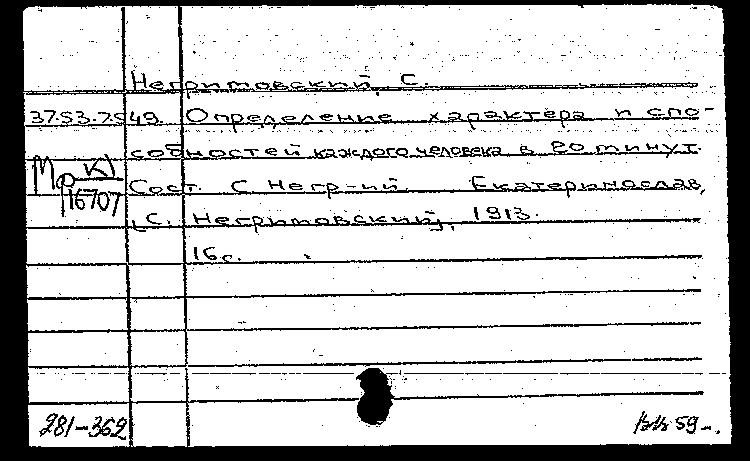 Негритовский, С.
37.53.7.549. Определение характера и спо-
собностей каждого человека в 20 минут.
Мф К)
16707
Сост. С. Негр-ий. Екатеринослав,
[С. Негритовский], 1913.
16 с.
281-362
59-.